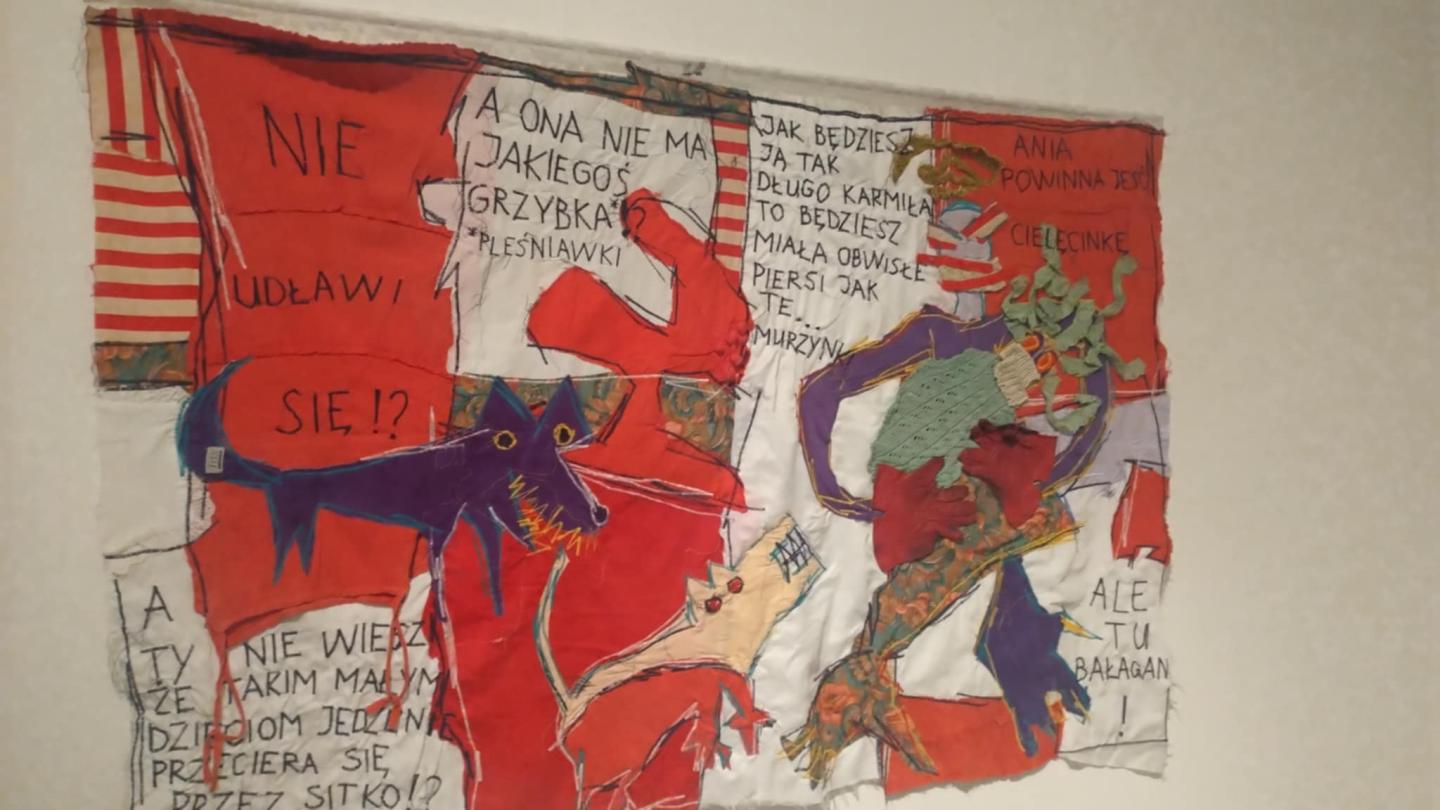 NIE
UDŁAWI
SIĘ!?
A ONA NIE MA
JAKIEGOŚ
GRZYBKA*?
*PLEŚNIAWKI
JAK BĘDZIESZ
JĄ TAK
DŁUGO KARMIŁA
TO BĘDZIESZ
MIAŁA OBWISŁE
PIERSI JAK
TE...
MURZYNKI
ANIA
POWINNA JEŚĆ
CIELĘCINKĘ
A
TY NIE WIESZ
ŻE TAKIM MAŁYM
DZIECIOM JEDZENIE
PRZECIERA SIĘ
PRZEZ SITKO!?
ALE
TU
BAŁAGAN
!